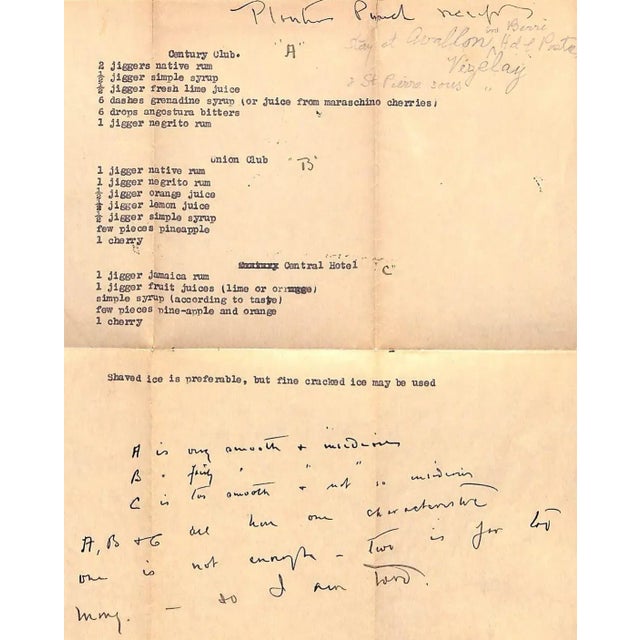 Planters Punch receipts
in Berri
stay at Avallon, Hotel Poste
Vézelay
& St Pierre sous "
Century Club. "A"
2 jiggers native rum
½ jigger simple syrup
½ jigger fresh lime juice
6 dashes grenadine syrup (or juice from maraschino cherries)
6 drops angostura bitters
1 jigger negrito rum
Union Club "B"
1 jigger native rum
1 jigger negrito rum
½ jigger orange juice
jigger lemon juice
½ jigger simple syrup
few pieces pineapple
1 cherry
Central Hotel "C"
1 jigger jamaica rum
1 jigger fruit juices (lime or orrange)
simple syrup (according to taste)
few pieces pine-apple and orange
1 cherry
Shaved ice is preferable, but fine cracked ice may be used
A is very smooth & insidious
B " fairly " " "
C is less smooth & not so insidious
A, B & C all have one characteristic
one is not enough - two is far too
many. - so I am told.